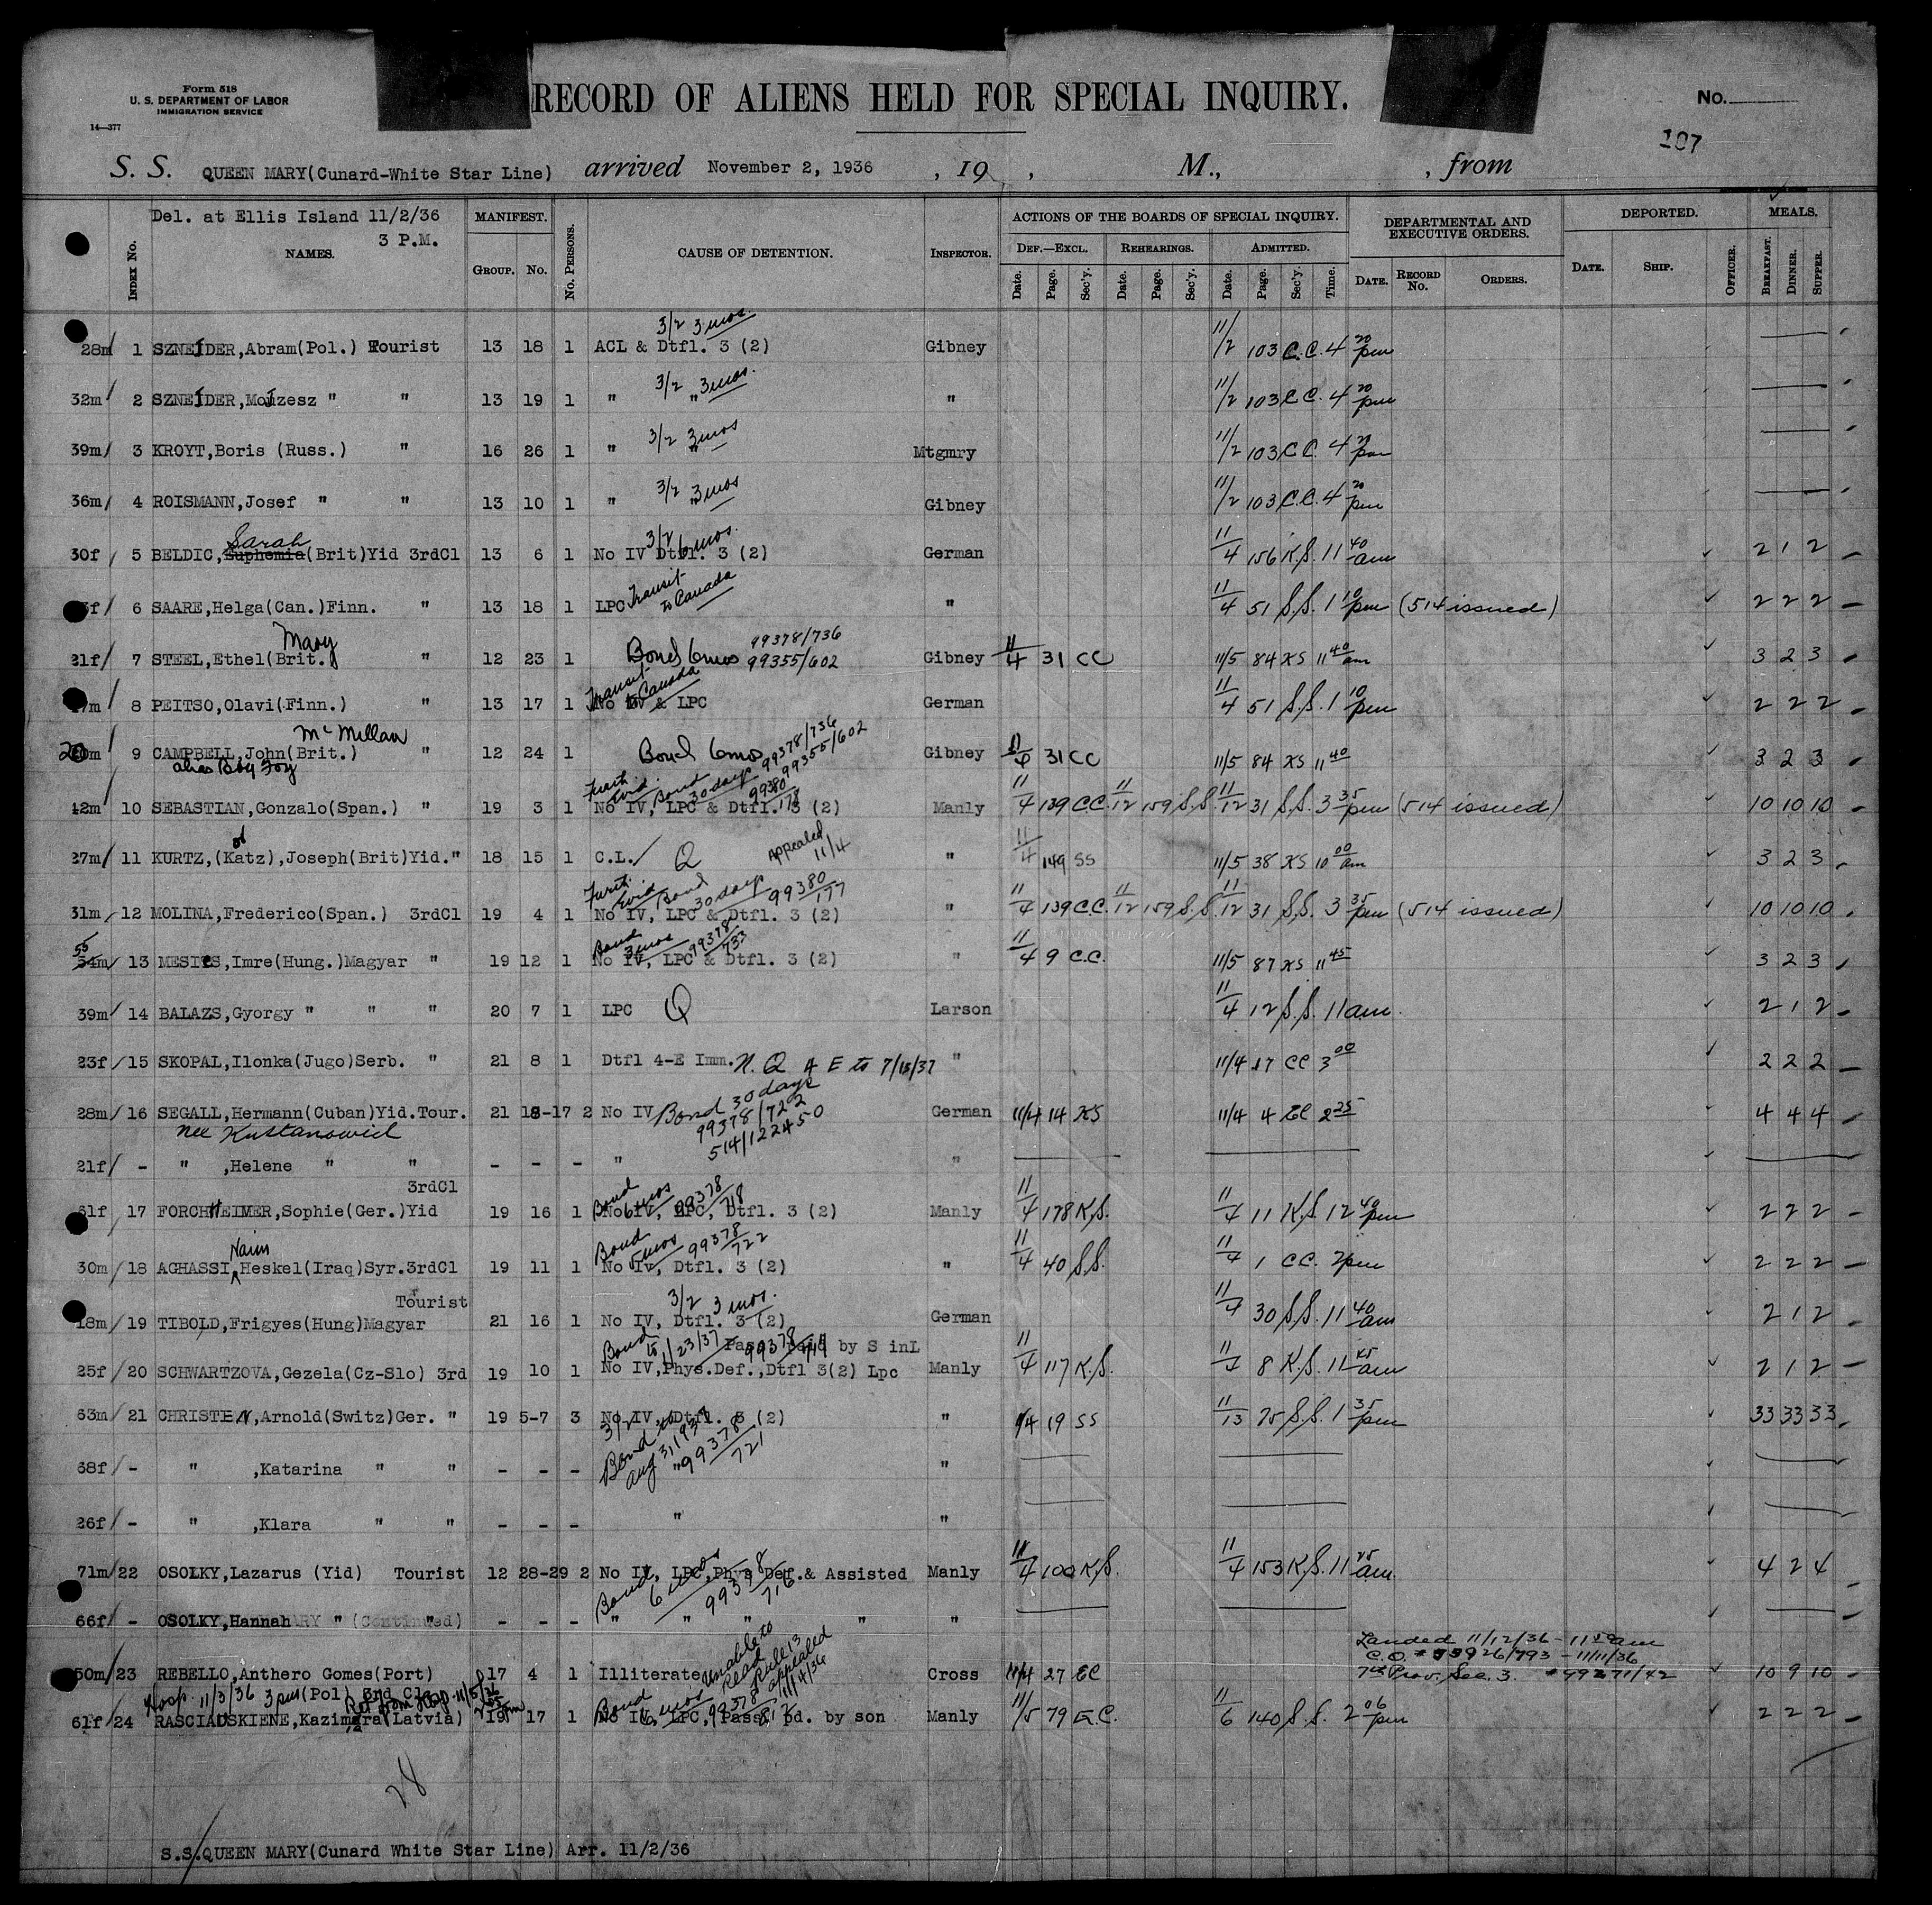 Form 518
U. S. DEPARTMENT OF LABOR
IMMIGRATION SERVICE
14—377
RECORD OF ALIENS HELD FOR SPECIAL INQUIRY.
No.
107
S. S. QUEEN MARY(Cunard-White Star Line) arrived November 2, 1936 , 19 , M., , from
Del. at Ellis Island 11/2/36
3 P.M.
INDEX No. NAMES. MANIFEST. GROUP. No. No. PERSONS. CAUSE OF DETENTION. INSPECTOR. ACTIONS OF THE BOARDS OF SPECIAL INQUIRY. DEF.—EXCL. Date. Page. Sec'y. REHEARINGS. Date. Page. Sec'y. ADMITTED. Date. Page. Sec'y. Time. DEPARTMENTAL AND EXECUTIVE ORDERS. DATE. RECORD No. ORDERS. DEPORTED. DATE. SHIP. OFFICER. MEALS. BREAKFAST. DINNER. SUPPER.
3/2 3 mos.
28m 1 SZNEJDER,Abram(Pol.) Tourist 13 18 1 ACL & Dtfl. 3 (2) Gibney 11/2 103 C.C. 4 20 pm
3/2 3 mos.
32m 2 SZNEJDER,Mojzesz " " 13 19 1 " " " 11/2 103 C.C. 4 20 pm
3/2 3 mos
39m 3 KROYT,Boris (Russ.) " 16 26 1 " " Mtgmry 11/2 103 C.C. 4 20 pm
3/2 3 mos
36m 4 ROISMANN,Josef " " 13 10 1 " " Gibney 11/2 103 C.C. 4 20 pm
Sarah 3/2 6 mos.
30f 5 BELDIC,Euphemia(Brit)Yid 3rdCl 13 6 1 No IV Dtfl. 3 (2) German 11/4 156 K.S. 11 40 am 2 1 2
Transit to Canada
6 SAARE,Helga(Can.)Finn. " 13 18 1 LPC " 11/4 51 S.S. 1 10 pm (514 issued) 2 2 2
Mary 99378/736
21f 7 STEEL,Ethel(Brit. " 12 23 1 Bond 6mos 99355/602 Gibney 11/4 31 CC 11/5 84 KS 11 40 am 3 2 3
Transit to Canada
8 PEITSO,Olavi(Finn.) " 13 17 1 No IV & LPC German 11/4 51 S.S. 1 10 pm 2 2 2
McMillan
20m 9 CAMPBELL,John(Brit.) " 12 24 1 Bond 6mos 99378/736 99355/602 Gibney 11/4 31 CC 11/5 84 KS 11 40 3 2 3
alias
Furth. Evid. Bond 30 days 99380/178
42m 10 SEBASTIAN,Gonzalo(Span.) " 19 3 1 No IV, LPC & Dtfl. 3 (2) Manly 11/4 139 C.C. 11/12 159 S.S. 11/12 31 S.S. 3 35 pm (514 issued) 10 10 10
or Appealed 11/4
27m 11 KURTZ,(Katz),Joseph(Brit)Yid." 18 15 1 C.L. Q " 11/4 149 SS 11/5 38 KS 10 00 am 3 2 3
Furth. Evid Bond 30 days 99380/177
31m 12 MOLINA,Frederico(Span.) 3rdCl 19 4 1 No IV, LPC & Dtfl. 3 (2) " 11/4 139 C.C. 11/12 159 S.S. 11/12 31 S.S. 3 35 pm (514 issued) 10 10 10
Bond 3 mos 99378/733
55 34m 13 MESITS,Imre(Hung.)Magyar " 19 12 1 No IV, LPC & Dtfl. 3 (2) " 11/4 9 C.C. 11/5 87 KS 11 45 3 2 3
39m 14 BALAZS,Gyorgy " " " 20 7 1 LPC Q Larson 11/4 12 S.S. 11 am. 2 1 2
23f 15 SKOPAL,Ilonka(Jugo)Serb. " 21 8 1 Dtfl 4-E Imm. N. Q A E to 7/15/37 " 11/4 17 CC 3 00 2 2 2
28m 16 SEGALL,Hermann(Cuban)Yid.Tour. 21 18-17 2 No IV Bond 30 days 99378/722 514/122450 German 11/4 14 KS 11/4 4 EC 2 25 4 4 4
nee
21f - " ,Helene " " - - - " "
3rdCl Bond 6 mos 99378/718
61f 17 FORCHHEIMER,Sophie(Ger.)Yid 19 16 1 No IV, LPC, Dtfl. 3 (2) Manly 11/4 178 K.S. 11/4 11 K.S. 12 40 pm 2 2 2
Naim Bond 5 mos 99378/722
30m 18 AGHASSI,Heskel(Iraq)Syr.3rdCl 19 11 1 No IV, Dtfl. 3 (2) " 11/4 40 S.S. 11/4 1 CC. 2pm 2 2 2
Tourist 3/2 3 mos.
18m 19 TIBOLD,Frigyes(Hung)Magyar 21 16 1 No IV, Dtfl. 3 (2) German 11/4 30 S.S. 11 40 am 2 1 2
Bond to 11/23/37 by S inL
25f 20 SCHWARTZOVA,Gezela(Cz-Slo) 3rd 19 10 1 No IV,Phys.Def.,Dtfl 3(2) Lpc Manly 11/4 117 K.S. 11/4 8 K.S. 11 45 am 2 1 2
63m 21 CHRISTEN,Arnold(Switz)Ger. " 19 5-7 3 No IV, Dtfl. 3 (2) " 11/4 19 SS 11/13 75 S.S. 1 35 pm 33 33 33
3/2 Bond to Aug 31, 1937 99378/721
68f - " ,Katarina " " - - - " "
26f - " ,Klara " " - - - " "
71m 22 OSOLKY,Lazarus (Yid) Tourist 12 28-29 2 No IV, LPC,Phys Def.& Assisted Manly 11/4 100 K.S. 11/4 153 K.S. 11 25 am. 4 2 4
Bond 6 mos 99378/716
66f - OSOLKY,Hannah " (Continued) - - - " " " " "
Landed 11/12/36 - 11 50 am
C.O. # 55926/793 - 11/11/36
50m 23 REBELLO,Anthero Gomes(Port) 17 4 1 Illiterate Unable to Read Rule 13 appealed 11/4/36 Cross 11/4 27 EC 7th Prov. Sec. 3. # 99271/42 10 9 10
Hosp. 11/3/36 3 pm (Pol) 3rd Cl Ret from Hosp. 11/5/36
61f 24 RASCIAUSKIENE,Kazimera(Latvia) 19 17 1 No IV, LPC, Pass. pd. by son Manly 11/5 79 E.C. 11/6 140 S.S. 2 06 pm 2 2 2
Bond 6 mos
28
S.S.QUEEN MARY(Cunard White Star Line) Arr. 11/2/36